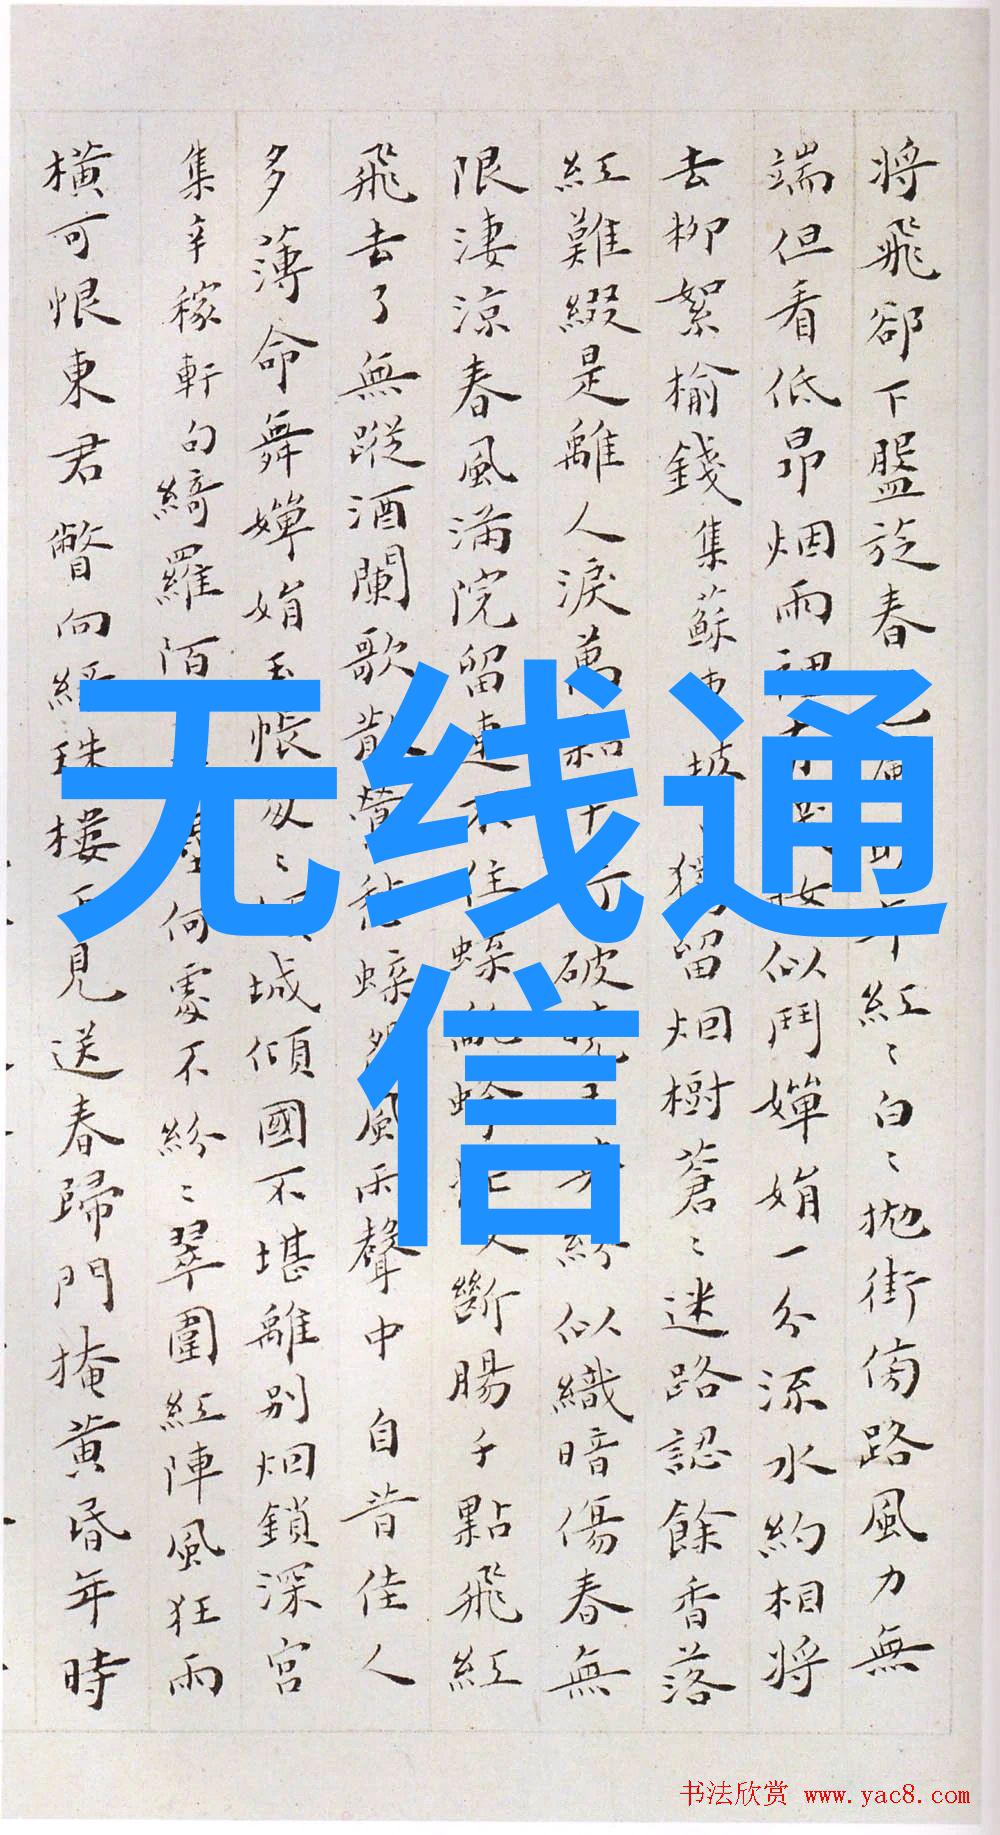 将飛卻下盤旋春
紅〻白〻拋街傍路風力無
端但看低昂烟雨裡
似鬥嬋娟一分流水約相將
去柳絮榆錢集蘇
留烟樹蒼〻迷路認餘香落
紅難綴是離人淚萬
破
紛似織暗傷春無
限淒涼春風滿院留連不住蜂
斷腸千點飛紅
飛去了無蹤酒闌歌散
風雨聲中 自昔佳人
多薄命舞嬋娟
帳
城傾國不堪離別烟鎖深宮
集辛稼軒句綺羅陌
何處不紛〻翠圍紅陣風狂雨
橫可恨東君瞥向綠珠樓
見送春歸門掩黃昏年時
无线通
信
书法欣赏 www.yac8.com